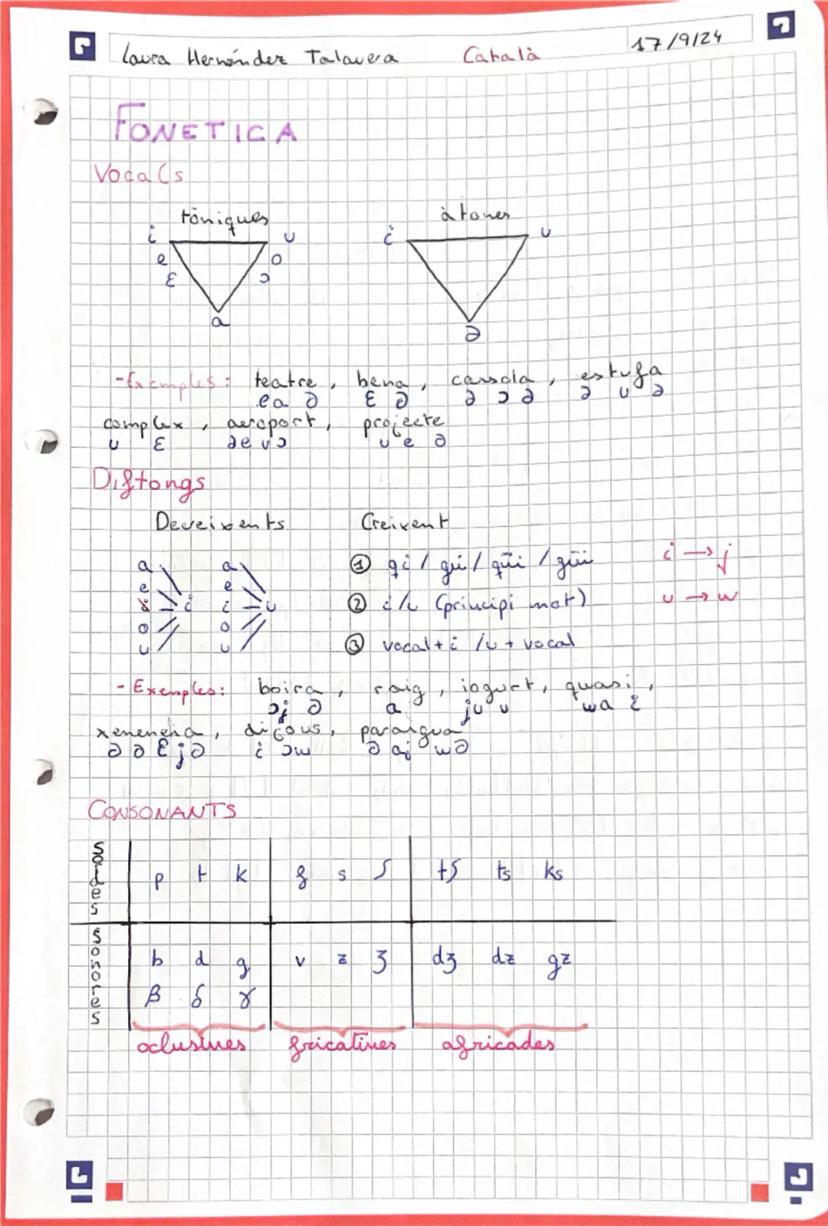 Laura Hernández Talavera Català 17/9/24
FONETICA
Vocals
tòniques àtones
i u i u
e o
ɛ ɔ
a ə
-Exemples: teatre, bena, cassola, estufa
ea ə ɛ ə ə ɔ ə ə u ə
complex, aeroport, projecte
u ɛ əe u ɔ u e ə
Diftongs
Decreixents Creixent
a a ① qü / gü / qüi / güi i → j
e e
i i i u ② i/u (principi mot) u → w
o o
u u ③ vocal + i /u + vocal
- Exemples: boira, raig, iogurt, quasi,
ɔj ə a ju u wa i
xenencia, dijous, paraigua
ə ə ɛ jə i ɔw ə aj wə
CONSONANTS
Sordes p t k f s ʃ tʃ ts ks
Sonores b d g v z ʒ dʒ dz gz
β δ γ
oclusives fricatives africades